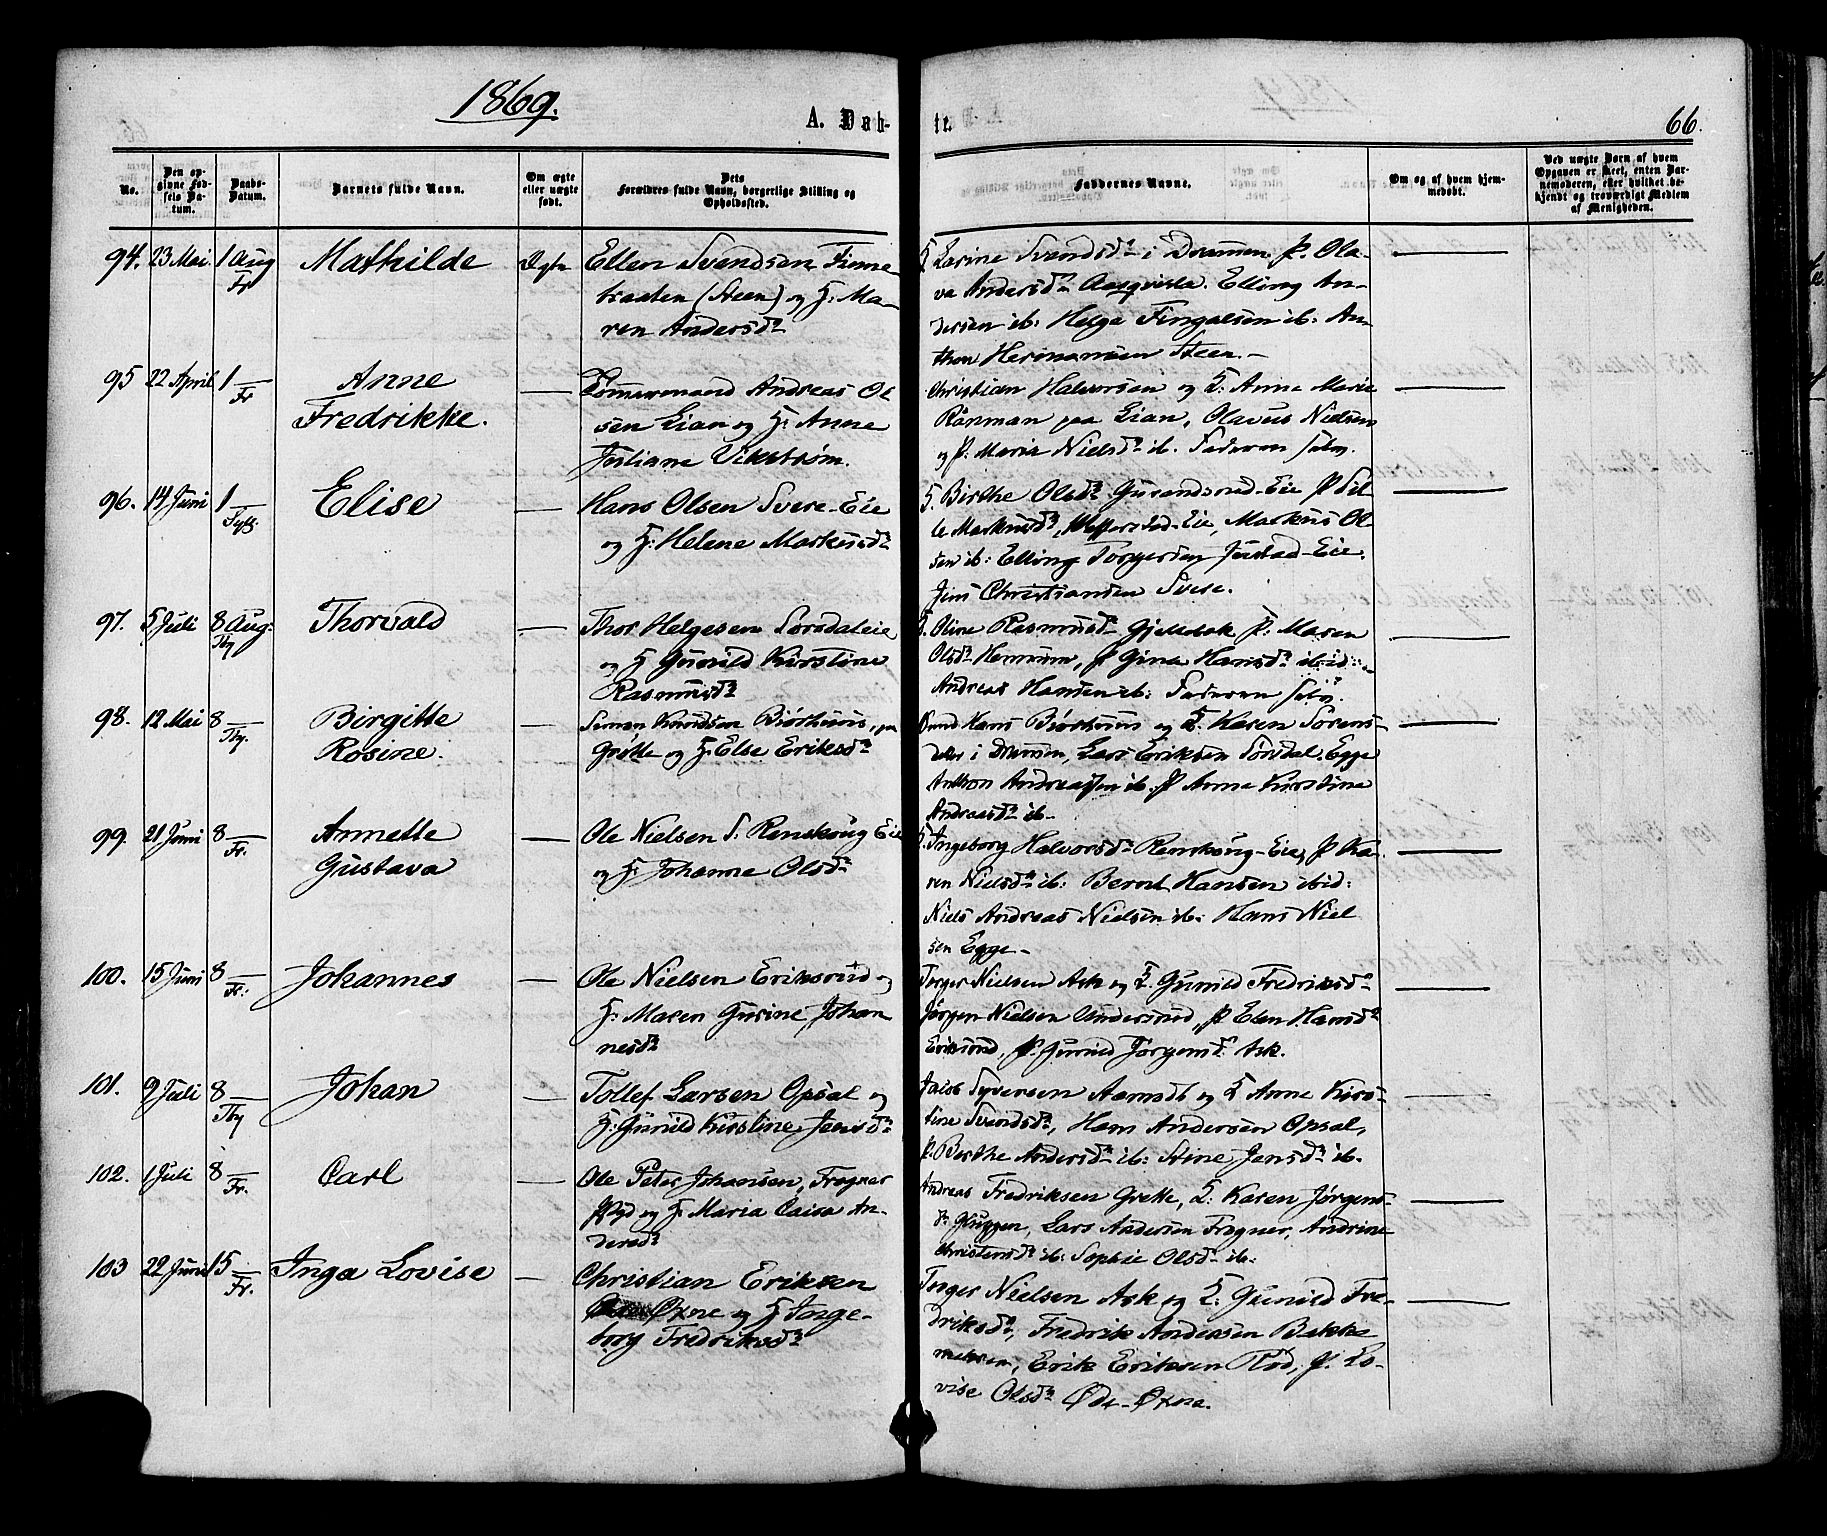 1869.
A. Døb-
te.
66.
No.
Den op-
givne Fød-
sels Da-
tum.
Daabs-
Datum.
Barnets fulde Navn.
Om ægte
eller uægte
født.
Dets
Forældres fulde Navn, borgerlige Stilling og
Opholdssted.
Faddernes Navne.
Om og af hvem hjem-
medøbt.
Ved uægte Børn af hvem
Opgaven er skeet, enten Bar-
nemoderen, eller hvilket be-
kjendt og troværdigt Medlem
af Menigheden.
94. 23 Mai 1 Aug Fr Mathilde Ægte
Ellen Svendsen Finne
braaten (Steen) og H. Ma-
ren Andersdr
H. Larine Svendsdr i Drammen, P. Ola-
va Andersdr Aasqvisla. Elling An-
dersen ib: Helge Fingalsen ib: An-
thon Hermansen Steen.
95 22 April 1 Fr Anne
Fredrikke.
Tømmermand Andreas Ol
sen Lian og H. Anne
Juliane Vikstrøm.
Christian Halvorsen og H: Anne Marie
paa Lian, Olavus Nielsen
og P. Maria Nielsdr ib. Faderen selv.
96. 14 Juni 1 Elise
Hans Olsen Svere-Eie
og H: Helene Markusdr
H. Birthe Olsdr Eie P Sil-
le Markusdr, Eie, Markus Ol
sen ib: Elling Torgersen Justad-Eie.
Jens Christiansen Svere.
97. 5 Juli 8 Aug: Thy Thorvald
Thor Helgesen Sørsdaleie
og H Gunild Kirstine
Rasmusdr
H. Oline Rasmusdr Gjellebæk P: Maren
Olsdr Hennum, P Gina Hansdr ibid:
Andreas Hansen ib: Faderen selv.
98. 12 Mai 8 Thy. Birgitte
Rosine.
Simen Knudsen Biørhuus, paa
Grøtte og H: Else Eriksdr
Knud Hans Biørhuus og H. Karen Sørens-
datter i Drammen, Lars Eriksen Sørsdal. Egge
Anthon Andreassen ib. P Anne Kirstine
Andreasdr ib.
99. 21 Juni 8 Fr. Annette
Gustava
Ole Nielsen S: Renskoug Eie
og H: Johanne Olsdr
H. Ingeborg Halvorsdr Renskoug-Eie, P Ka-
ren Nielsdr ib: Bernt Hansen ibid:
Niels Andreas Nielsen ib: Hans Niel
sen Egge
100. 15 Juni 8 Fr: Johannes
Ole Nielsen Eriksrud og
H: Maren Gurine Johan
nesdr
Torger Nielsen Ask og H. Gunild Fredriksdr
Jørgen Nielsen Undersrud, P Elen Hansdr
Eriksrud, P. Gunild Jørgensdr Ask.
101. 9 Juli 8 Thy Johan
Tollef Larsen Opsal og
H: Gunild Kirstine Jensdr
Jacob Syversen Aamodt og H Anne Kirs-
tine Svendsdr, Hans Andersen Opsal,
P. Berthe Andersdr ib: Stine Jensdr ib.
102. 1 Juli 8 Fr. Carl
Ole Peter Johansen, Frogner
og H: Maria Caisa An-
dersdr
Andreas Fredriksen Grette, H: Karen Jørgens-
dr Gluggen, Lars Andersen Frogner, Andrine
Christensdr ib: Sophie Olsdr ib.
103 22 Juni 15 Fr. Inga Lovise
Christian Eriksen
Øxne og H Inge-
borg Fredriksdr
Torger Nielsen Ask og H: Gunild Fre-
driksdr, Fredrik Andersen Bakke
Erik Eriksen Rød, P. Lo-
vise Olsdr Øde-Øxne.